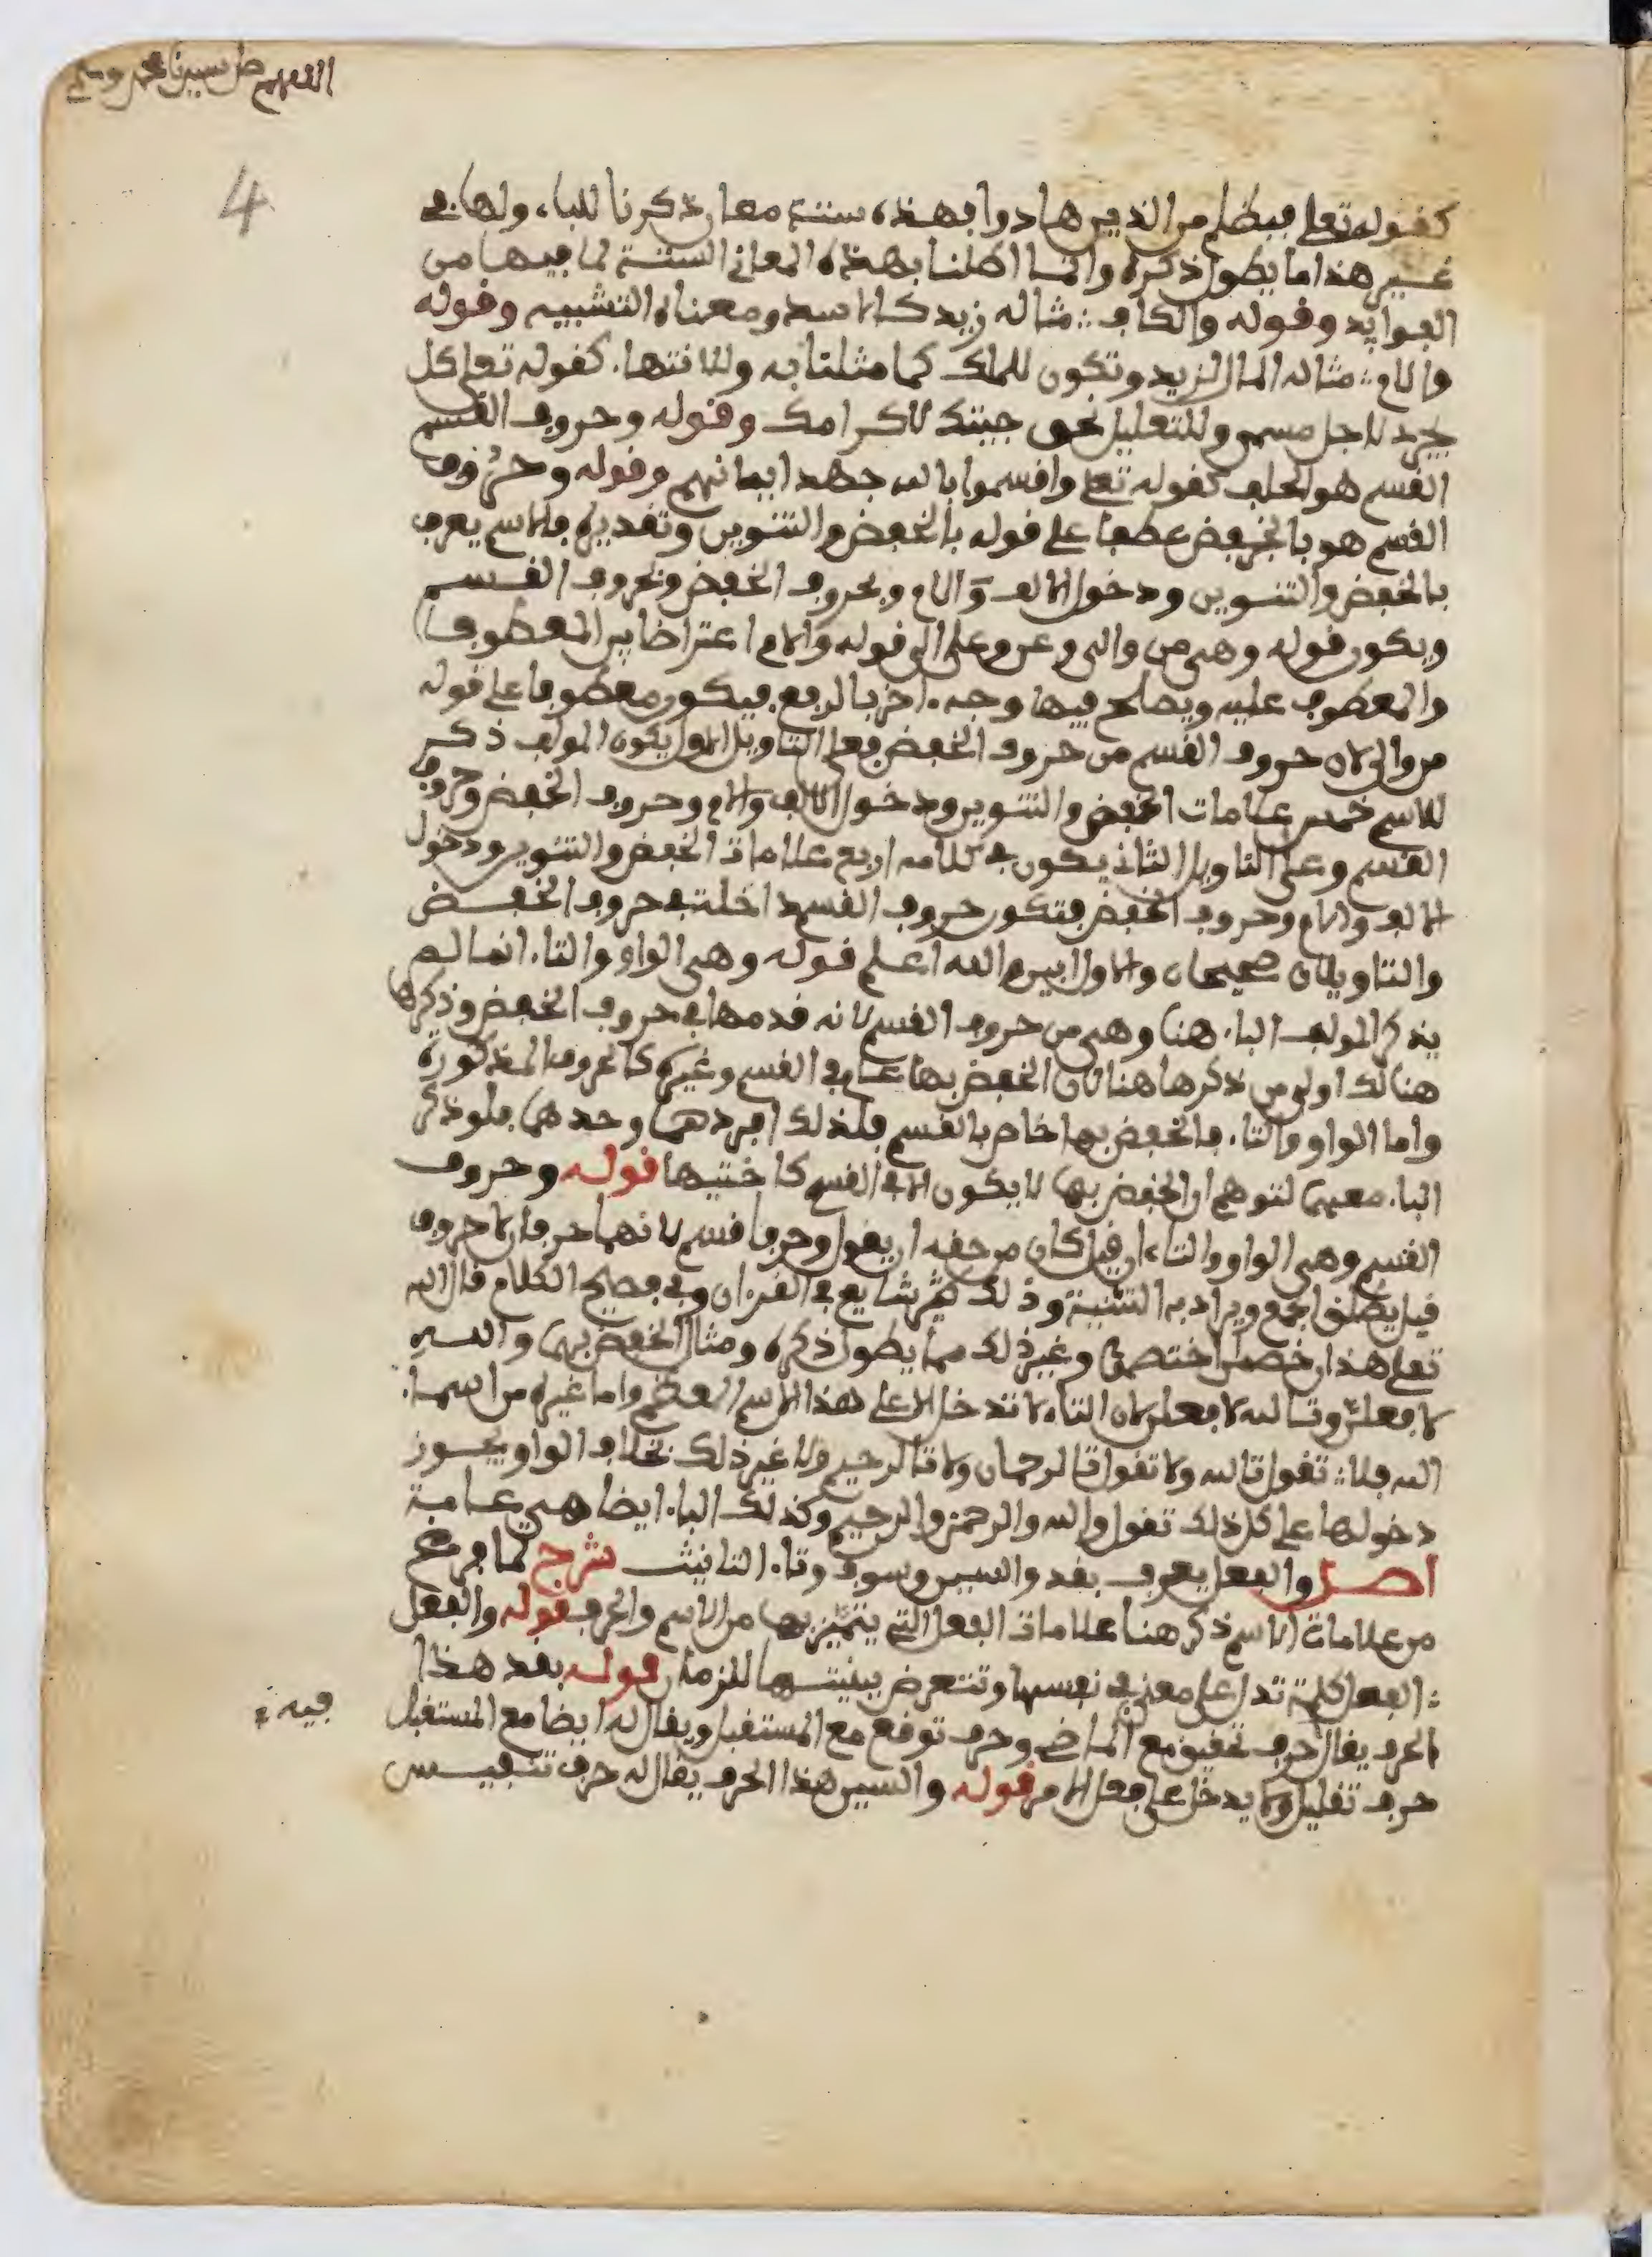 اللهم صل سيدنا محمد وسلم
4
كقوله تعلى فبظلم من الذين هادوا فهذه ستة معان ذكرنا للباء ولها في
غير هذا ما يطول ذكره وانما اكملنا بهذه المعاني الستة لما فيها من
الفوايد وقوله والكاف مثاله زيد كالاسد ومعناه التشبيه وقوله
واللام مثاله المال لزيد وتكون للملك كما مثلنا به ولانتها كقوله تعلى كل
يجري لاجل مسمى وللتعليل نحو جيتك لاكرامك وقوله وحروف القسم
القسم هو الحلف كقوله تعلى واقسموا بالله جهد ايمانهم وقوله وحروف
القسم هو بالخفض عطفا على قوله بالخفض والتنوين وتقديره فالاسم يعرف
بالخفض والتنوين ودخول الالف واللام وبحروف الخفض وبحروف القسم
ويكون قوله وهي من والى وعن وعلى الى قوله واللام اعتراضا بين المعطوف
والمعطوف عليه ويصلح فيها وجه اخر بالرفع فيكون معطوفا على قوله
من والى لان حروف القسم من حروف الخفض فعلى التاويل الاول يكون المولف ذكر
للاسم خمس علامات الخفض والتنوين ودخول الالف واللام وحروف الخفض وحروف
القسم وعلى التاويل الثاني يكون في كلامه اربع علامات الخفض والتنوين ودخول
الالف واللام وحروف الخفض فتكون حروف القسم داخلة في حروف الخفض
والتاويلان صحيحان والاول ابين والله اعلم قوله وهي الواو والتاء انما لم
يذكر المولف الباء هنا وهي من حروف القسم لانه قدمها في حروف الخفض وذكرها
هنالك اولى من ذكرها هنا لان الخفض بها عام في القسم وغيره كالحروف المذكورة
واما الواو والتاء فالخفض بها خاص بالقسم فلذلك افردهما وحدهما فلو ذكر
الباء معهما لتوهم ان الخفض بها لا يكون الا في القسم كاختيها قوله وحروف
القسم وهي الواو والتاء ان قيل كان من حقه ان يقول وحرفا قسم لانهما حرفان لا حروف
قيل يطلق الجمع ويراد به التثنية وذلك شايع في القرءان وفي فصيح الكلام قال الله
تعلى هذان خصمان اختصموا وغير ذلك مما يطول ذكره ومثال الخفض بهما والله
لافعلن وتالله لافعلن لان التاء لا تدخل الا على هذا الاسم العظيم واما غيره من اسماء
الله فلا تقول تالله ولا تقول تالرحمان ولا تالرحيم ولا غير ذلك بخلاف الواو يجوز
دخولها على كل ذلك تقول والله والرحمن والرحيم وكذلك الباء ايضا هي عامة
اصل والفعل يعرف بقد والسين وسوف وتاء التانيث شرح لما فرغ
من علامات الاسم ذكر هنا علامات الفعل التي يتميز بها من الاسم والحرف قوله والفعل
الفعل كلمة تدل على معنى في نفسها وتتعرض ببنيتها للزمان قوله بقد هذا
الحرف يقال حرف تحقيق مع الماضي وحرف توقع مع المستقبل ويقال له ايضا مع المستقبل
فيه
حرف تقليل ولا يدخل على فعل الامر قوله والسين هذا الحرف يقال له حرف تنفيس